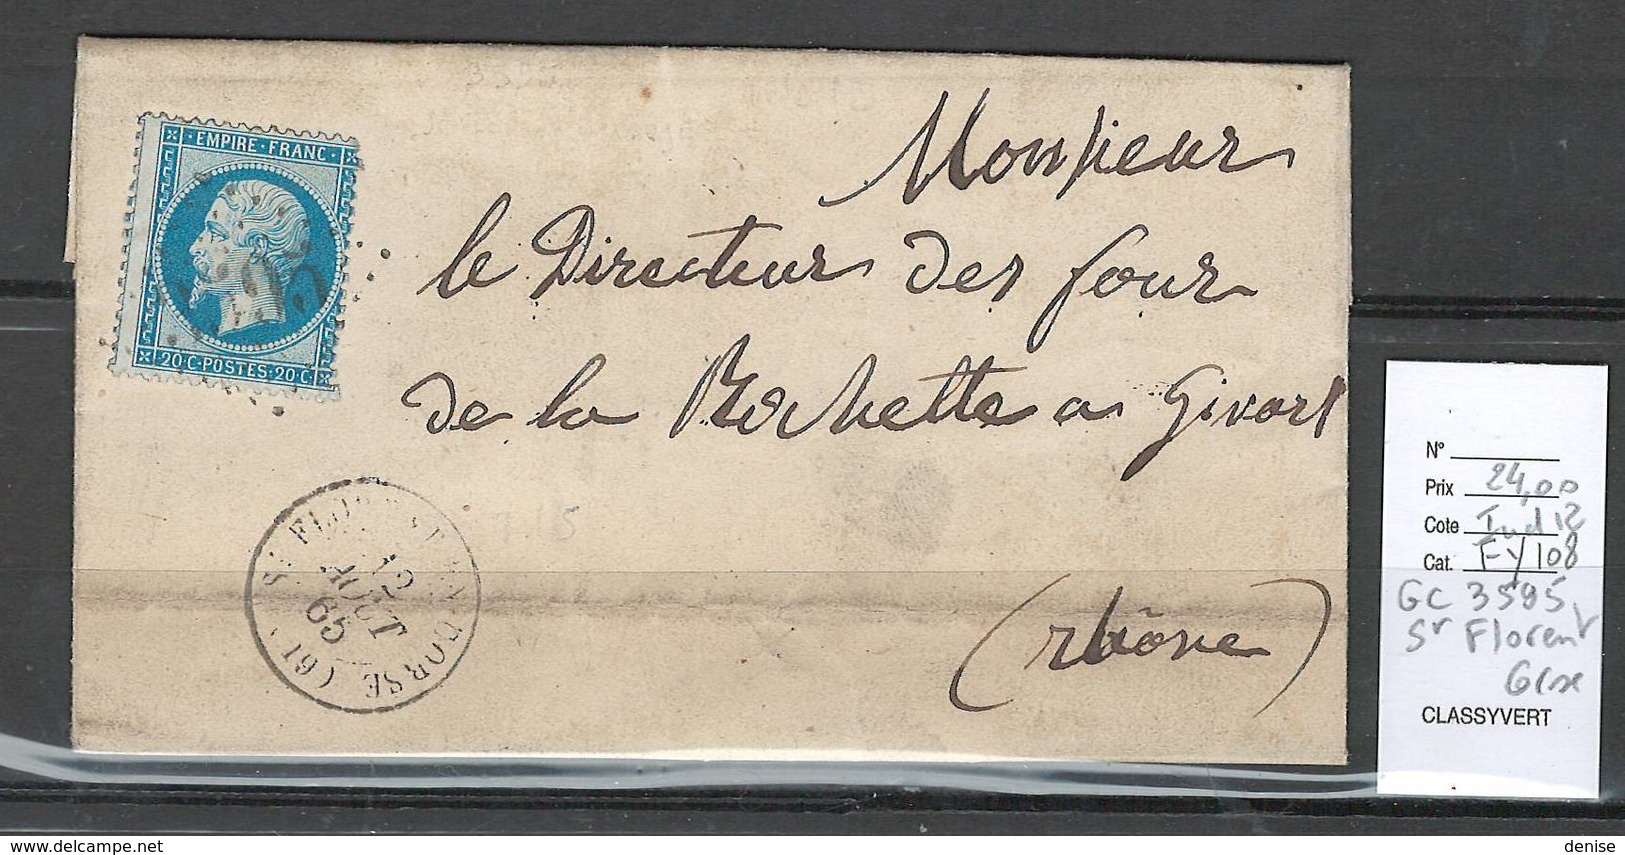 EMPIRE · FRANC ·
20 · C · POSTES · 20 · C ·
Monsieur
le Directeur des four
de la Rochette a Givors
(rhône)
12
AOUT
65
CORSE (19)
N°
Prix 24,00
Cote Ind 12
Cat. FY/108
GC 3595
St Florent
Corse
CLASSYVERT
www.delcampe.net
denise